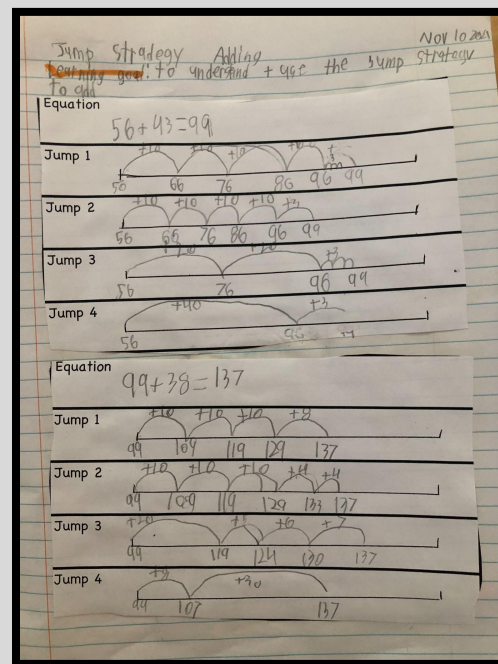 Nov 10 2021
Jump Stradegy Adding
Learning goal: to understand + use the Jump strategy
to add
Equation
56+43=99
Jump 1
+10 +10 +10 +10
56 66 76 86 96 99
Jump 2
+10 +10 +10 +10 +3
56 66 76 86 96 99
Jump 3
+20 +20 +3
56 76 96 99
Jump 4
+40 +3
56 96 99
Equation
99+38=137
Jump 1
+10 +10 +10 +8
99 109 119 129 137
Jump 2
+10 +10 +10 +4 +4
99 109 119 129 133 137
Jump 3
+20 +5 +6 +7
99 119 124 130 137
Jump 4
+8 +30
99 107 137